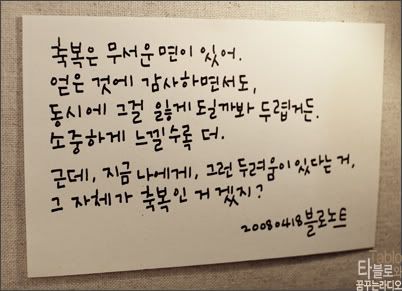 축복은 무서운 면이 있어.
얻은 것에 감사하면서도,
동시에 그걸 잃게 될까봐 두렵거든.
소중하게 느낄수록 더.
근데, 지금 나에게, 그런 두려움이 있다는 거,
그 자체가 축복인 거 겠지?
20080418 블로노트
tablo
타블로와
꿈꾸는라디오